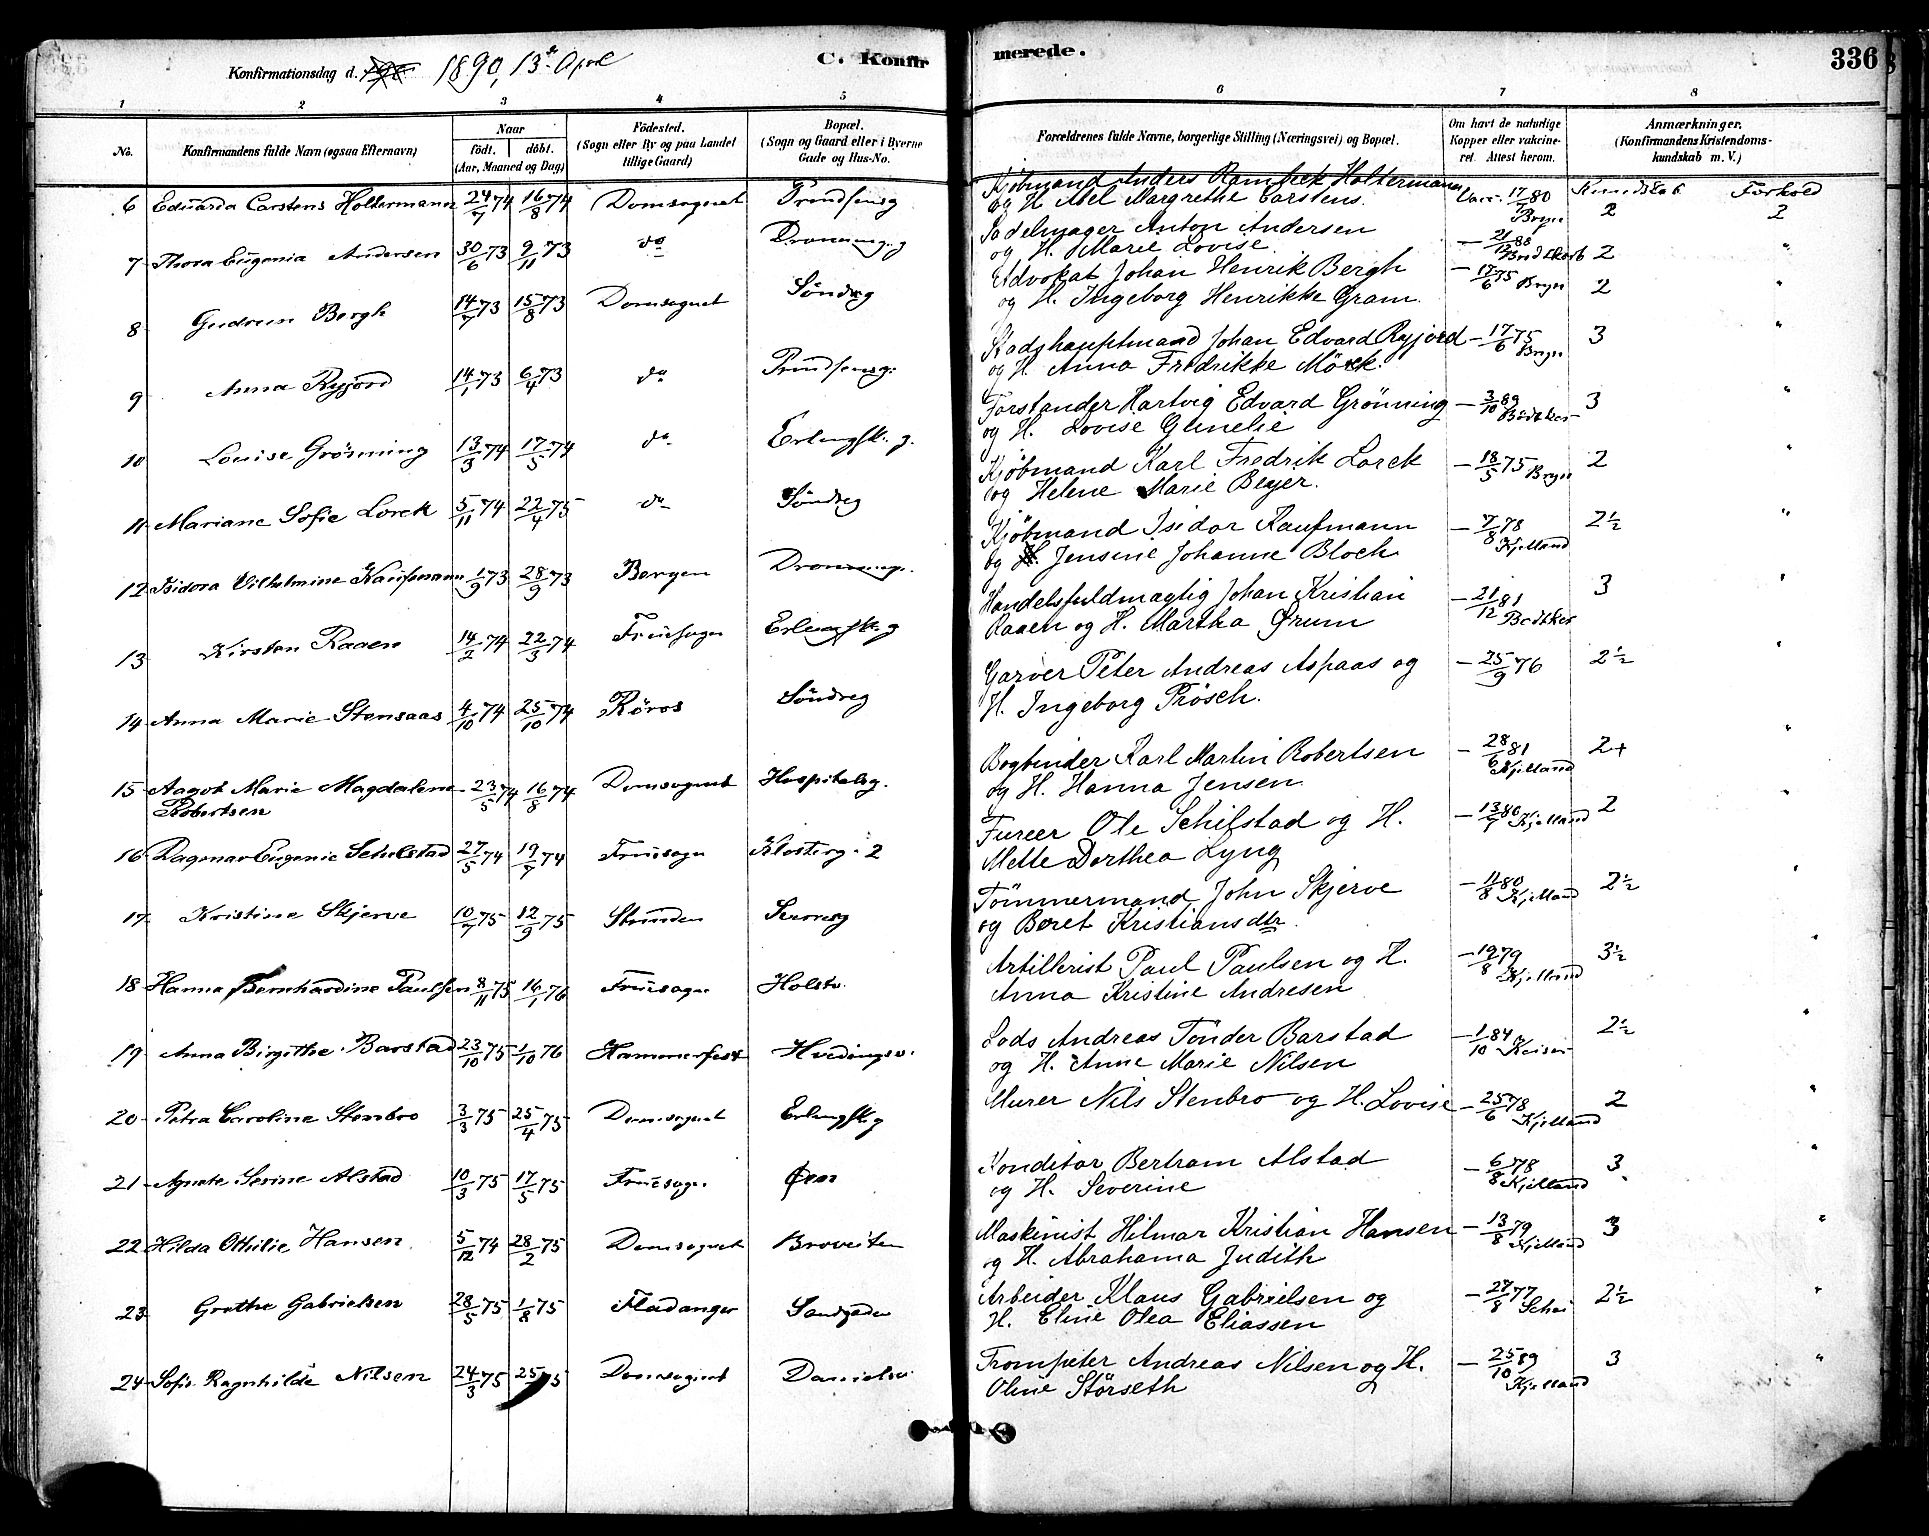 Konfirmationsdag d. 1890, 13de April C. Konfirmerede. 336
1 2 3 4 5 6 7 8
No. Konfirmandens fulde Navn (ogsaa Efternavn) Naar født. døbt. (Aar, Maaned og Dag) Födested. (Sogn eller By og paa Landet tillige Gaard) Bopæl. (Sogn og Gaard eller i Byerne Gade og Hus-No. Forældrenes fulde Navne, borgerlige Stilling (Næringsvei) og Bopæl. Om havt de naturlige Kopper eller vakcineret. Attest herom. Anmærkninger. (Konfirmandens Kristendomskundskab m. V.)
Kundskab Forhold
6 Eduarda Carstens Holtermann 24/7 74 16/8 74 Domsognet Prindsensg Kjøbmand Anders Rambek Holtermann Vacc. 17/7 80 Bryn 2 2
og H. Abel Margrethe Carstens.
7 Thora Eugenia Andersen 30/6 73 9/11 73 do Dronningg Sadelmager Anton Andersen — 21/12 88 Bødtker 2 "
og H. Marie Lovise
8 Gudrun Bergh 14/7 73 15/8 73 Domsognet Söndreg Advokat Johan Henrik Bergh — 17/6 75 Bryn 2 "
og H. Ingeborg Henrikke Gram.
9 Anna Ryjord 14/1 73 6/4 73 do Prindsensg. Stadshauptmand Johan Edvard Ryjord — 17/6 75 Bryn 3 "
og H. Anna Fredrikke Mörk.
10 Louise Grönning 13/3 74 17/5 74 do Erlingsk. g. Forstander Hartvig Edvard Grönning — 3/10 89 Bödtker 3 "
og H. Lovise Gunelie
11 Mariane Sofie Lorck 5/11 74 22/4 75 do Söndreg Kjøbmand Karl Fredrik Lorck — 18/5 75 Bryn 2 "
og Helene Marie Beyer.
12 Isidora Vilhelmine Kaufmann 1/9 73 28/9 73 Bergen Dronningg. Kjøbmand Isidor Kaufmann — 7/8 78 Kjelland 2½ "
og H. Jensine Johanne Bloch
13 Kirsten Raaen 14/2 74 22/3 74 Fruesogn Erlingsk. g Handelsfuldmægtig Johan Kristian — 21/12 81 Bødtker 3 "
Raaen og H. Martha Ørum
14 Anna Marie Stensaas 4/10 74 25/10 74 Röros Söndreg Garver Peter Andreas Aspaas og — 25/9 76 2½ "
H. Ingeborg Prösch.
15 Aagot Marie Magdalene 23/5 74 16/8 74 Domsognet Hospitalsg. Bogbinder Karl Martin Robertsen — 28/6 81 Kjelland 2+ "
Robertsen og H. Hanna Jensen
16 Dagmar Eugenie Schilstad 27/5 74 19/7 74 Fruesogn Klosterg. 2 Furer Ole Schilstad og H. — 13/7 80 Kjelland 2 "
Mette Dorthea Lyng
17 Kristine Skjerve 10/7 75 12/9 75 Strinden Sverresg Tömmermand John Skjerve — 11/8 80 Kjelland 2½ "
og Beret Kristiansdtr.
18 Hanna Bernhardine Paulsen 8/11 75 16/1 76 Fruesogn Holstv. Artillerist Paul Paulsen og H. — 19/8 79 Kjelland 3½ "
Anna Kristine Andresen
19 Anna Birgithe Barstad 23/10 75 1/10 76 Hammerfest Hvedingsv. Lods Andreas Tönder Barstad — 1/10 84 Keiser 2½ "
og H. Anne Marie Nilsen
20 Petra Caroline Stenbro 3/3 75 25/4 75 Domsognet Erlingsk g Murer Nils Stenbro og H. Lovise — 25/6 78 Kjelland 2 "
21 Agnete Serine Alstad 10/3 75 17/5 75 Fruesogn Øen Konditor Bertram Alstad — 6/8 78 Kjelland 3. "
og H. Severine
22 Hilda Othilie Hansen 5/12 74 28/2 75 Domsognet Broveiten Maskinist Hilmar Kristian Hansen — 13/8 79 Kjelland 3 "
og H. Abrahama Judith
23 Grethe Gabrielsen 28/5 75 1/8 75 Fladanger Sandgaden Arbeider Klaus Gabrielsen og — 27/8 77 2½ "
H. Eline Olea Eliassen
24 Sofie Ragnhilde Nilsen 24/3 75 25 75 Domsognet Danielsv. Trompeter Andreas Nilsen og H. — 25/10 89 Kjelland 3 "
Oline Störseth